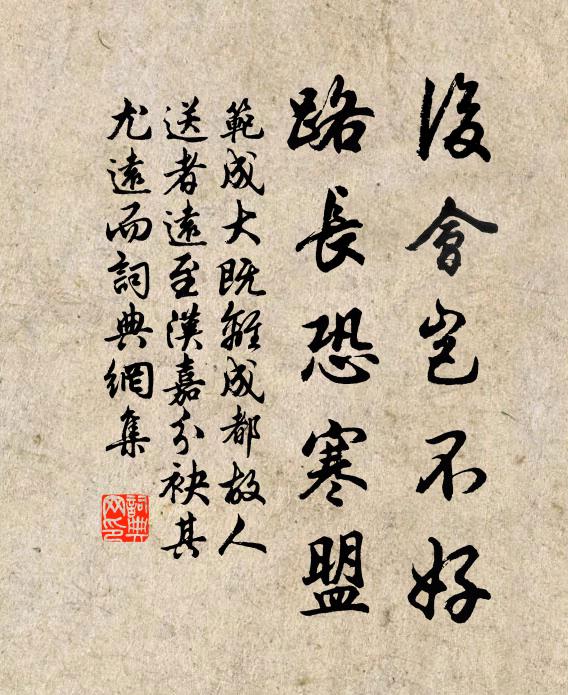 後會豈不好
路長恐寒盟
範成大既離成都故人
送者遠至漢嘉分袂其
尤遠而詞典網集
詞典網印